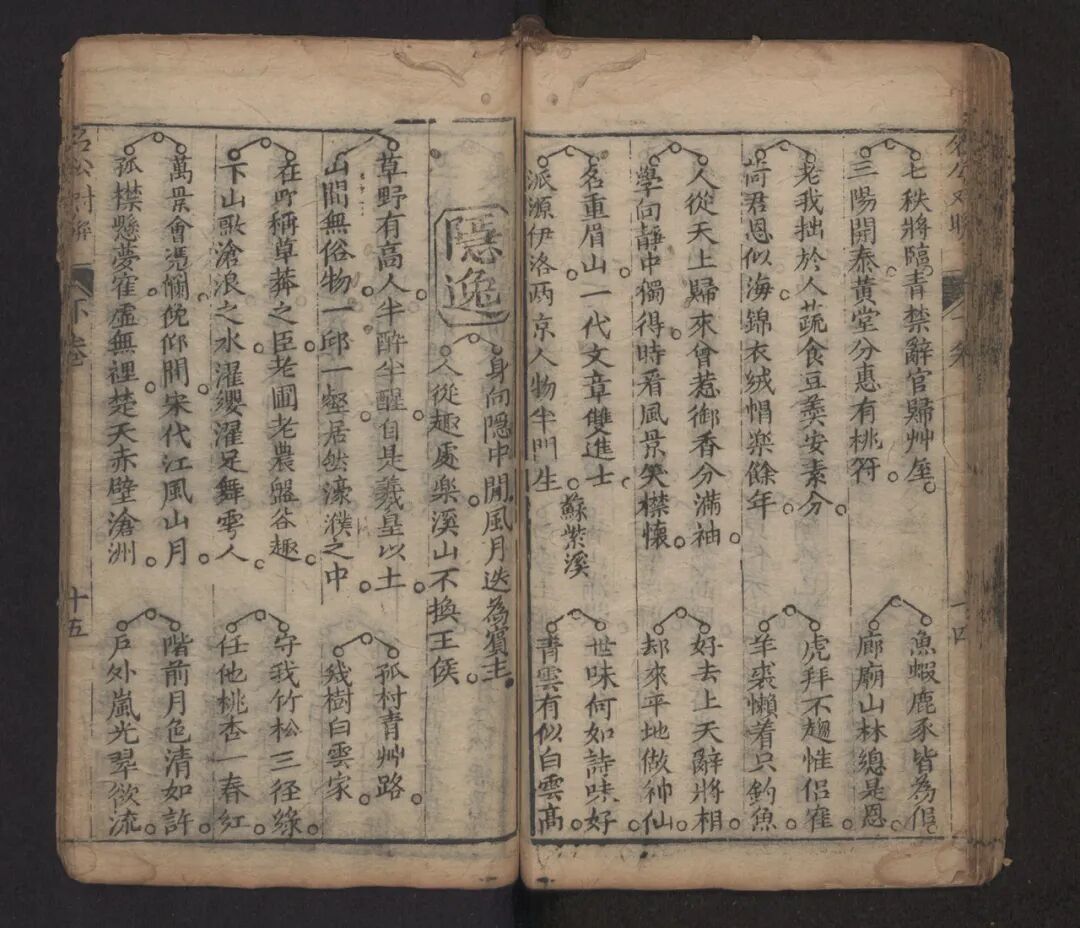 七秩將臨青禁辭官歸艸屋
漁蝦鹿豕皆為侣
三陽開泰黃堂分惠有桃符
廊廟山林總是恩
老我拙於人蔬食豆羹安素分
虎拜不趨惟侣寉
荷君恩似海錦衣絨帽楽餘年
羊裘懶着只釣魚
人從天上歸來曾惹御香分滿袖
好去上天辭將相
學向靜中獨得時看風景笑襟懷
却來平地做神仙
名重眉山一代文章雙進士
世味何如詩味好
派源伊洛两京人物半門生
蘇紫溪
青雲有似白雲高
隱逸
身向隱中閒風月迭為賔主
人從趣處楽溪山不換王侯
草野有高人半醉半醒自是羲皇以土
孤村青艸路
山間無俗物一邱一壑居然濠濮之中
幾樹白雲家
在町稱草莽之臣老圃老農盤谷趣
守我竹松三径綠
下山歌滄浪之水濯纓濯足舞雩人
任他桃杏一春紅
萬景會憑欄俛仰間宋代江風山月
階前月色清如許
孤襟懸夢寉虛無裡楚天赤壁滄洲
戶外嵐光翠欲流
名公對聯
下卷
十五